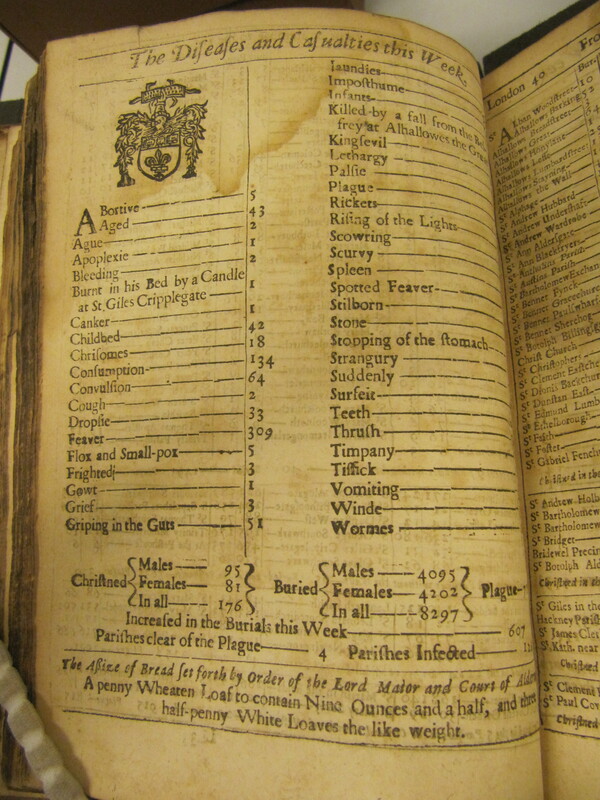 The Diſeaſes and Caſualties this Week.
ABortive 5
Aged 43
Ague 2
Apoplexie 1
Bleeding 2
Burnt in his Bed by a Candle
at St. Giles Cripplegate 1
Canker 1
Childbed 42
Chriſomes 18
Conſumption 134
Convulſion 64
Cough 2
Dropſie 33
Feaver 309
Flox and Small-pox 5
Frighted 3
Gowt 1
Grief 3
Griping in the Guts 51
Jaundies
Impoſthume
Infants
Killed by a fall from the
frey at Alhallowes the
Kingſevil
Lethargy
Palſie
Plague
Rickets
Riſing of the Lights
Scowring
Scurvy
Spleen
Spotted Feaver
Stilborn
Stone
Stopping of the ſtomach
Strangury
Suddenly
Surfeit
Teeth
Thruſh
Timpany
Tiſſick
Vomiting
Winde
Wormes
Chriſtned
Males 95
Females 81
In all 176
Buried
Males 4095
Females 4202
In all 8297
Plague
Increaſed in the Burials this Week 607
Pariſhes clear of the Plague 4 Pariſhes Infected
The Aſſize of Bread ſet forth by Order of the Lord Maior and Court of
A penny Wheaten Loaf to contain Nine Ounces and a half, and three
half-penny White Loaves the like weight.
London 40
ALban Woodſtreet
Alhallows Barking
Alhallows Breadſtreet
Alhallows Great
Alhallows
Alhallows Leſs
Alhallows Lumbardſtreet
Alhallows Stayning
Alhallows the Wall
St Alphage
St Andrew Hubbard
St Andrew Underſhaft
St Andrew Wardrobe
St Ann Alderſgate
St Ann Blackfryers
St Antholins Pariſh
St Auſtins Pariſh
St Bartholomew Exchan
St Bennet Fynck
St Bennet Gracechurch
St Bennet Paulſwharf
St Bennet Sherehog
St Botolph Billingſg
Chriſt Church
St Chriſtophers
St Clement Eaſtche
St Dionis Backchur
St Dunſtan Eaſt
St Edmund Lumb
St Ethelborough
St Faith
St Foſter
St Gabriel Fench
Chriſtned in the
St Andrew Holb
St Bartholomew
St Bartholomew
St Bridget
Bridewel Precin
St Botolph Ald
Chriſtned in the
St Giles in the
Hackney Pariſh
St James Cler
St Kath. near
Chriſtned
St Clement
St Paul Cov
Chriſtned